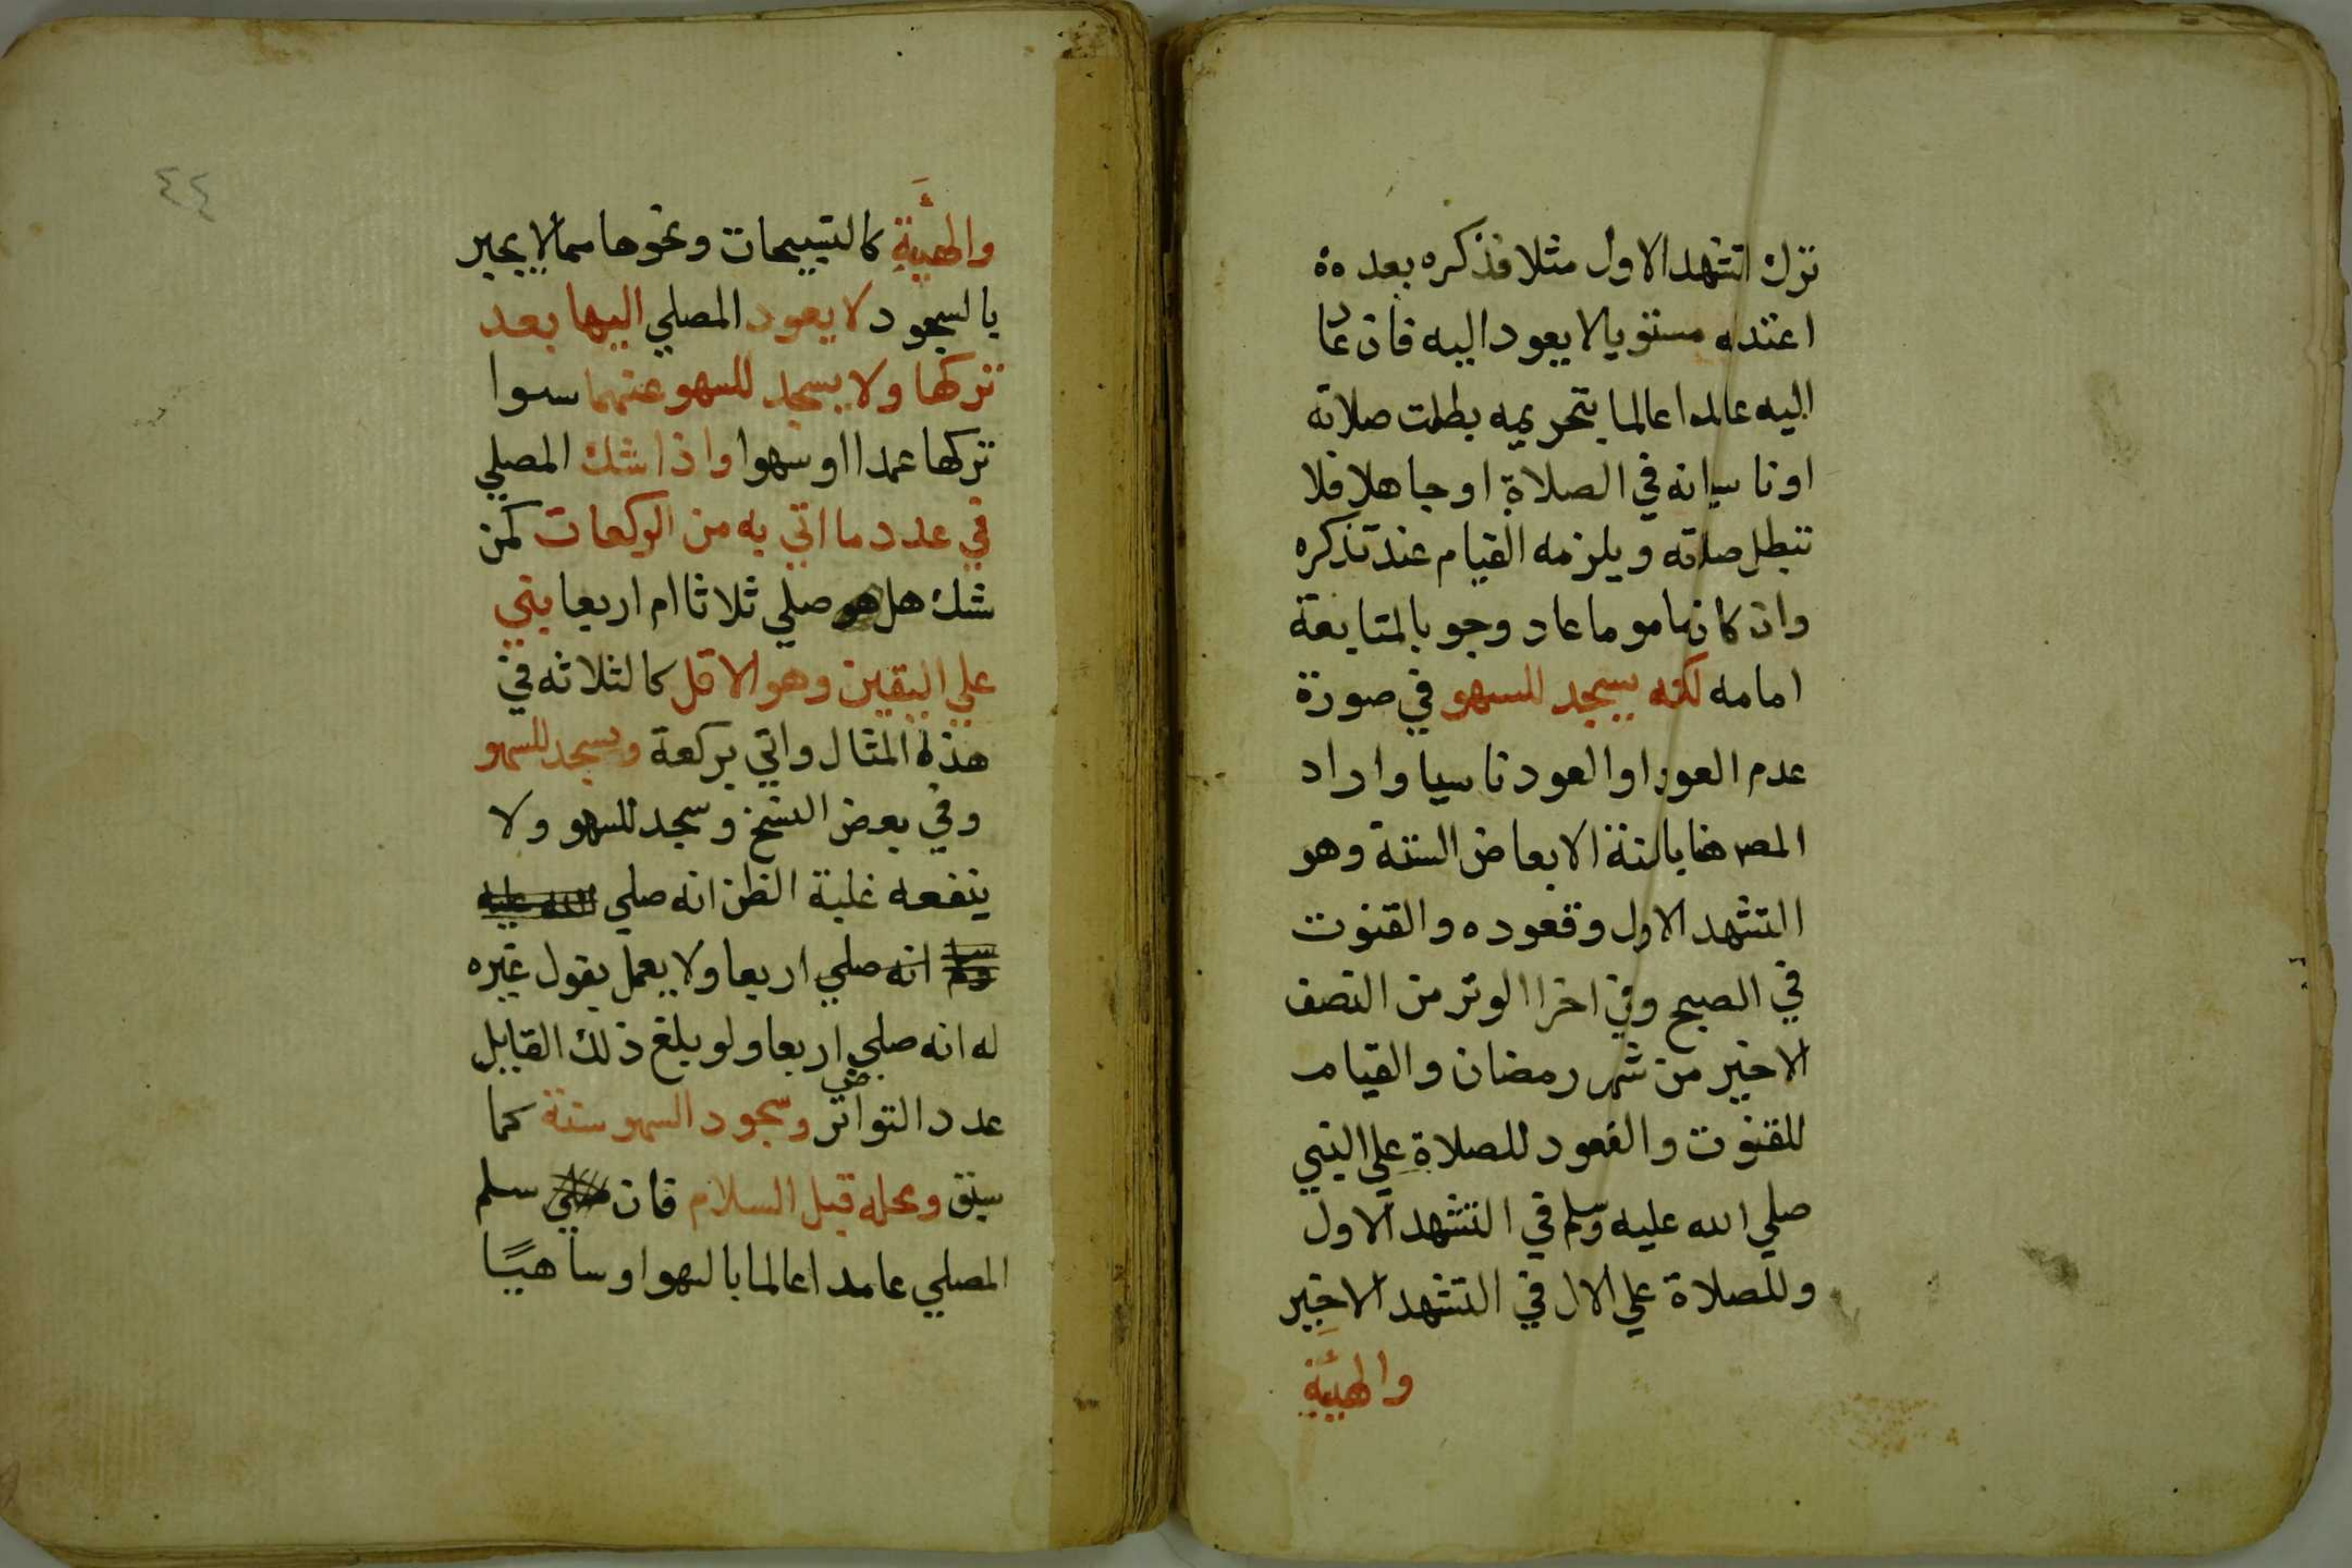 ترك التشهد الاول مثلا فذكره بعد ه
اعتداه مستويا لا يعود اليه فان عاد
اليه عامدا عالما بتحريمه بطلت صلاته
او ناسيا انه في الصلاة او جاهلا فلا
تبطل صلاته ويلزمه القيام عند تذكره
وان كان ماموما عاد وجوبا لمتابعة
امامه لكنه يسجد للسهو في صورة
عدم العود او العود ناسيا واراد
المص هنا بالسنة الابعاض الستة وهو
التشهد الاول وقعوده والقنوت
في الصبح وفي اخر الوتر من النصف
الاخير من شهر رمضان والقيام
للقنوت والقعود للصلاة علي النبي
صلي الله عليه وسلم في التشهد الاول
وللصلاة علي الال في التشهد الاخير
والهيئة
٤٤
والهيئة كالتسبيحات ونحوها مما لا يجبر
بالسجود لا يعود المصلي اليها بعد
تركها ولا يسجد للسهو عنهما سوا
تركها عمدا او سهوا واذا شك المصلي
في عدد ما اتي به من الركعات كمن
شك هل هو صلي ثلاثا ام اربعا بني
علي اليقين وهو الاقل كالثلاثه في
هذه المثال واتي بركعة ويسجد للسهو
وفي بعض النسخ وسجد للسهو ولا
ينفعه غلبة الظن انه صلي الله عليه
وسلم انه صلي اربعا ولا يعمل بقول غيره
له انه صلي اربعا ولو بلغ ذلك القايل
عدد التواتر وسجود السهو سنة كما
سبق ومحله قبل السلام فان صلي سلم
المصلي عامدا عالما بالسهو او ساهيا